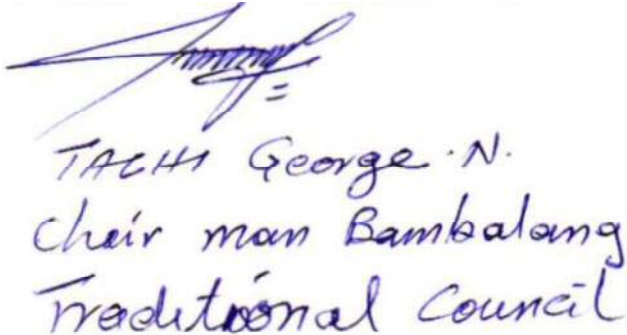 TACHI George .N.
Chair man Bambalang
Traditional Council